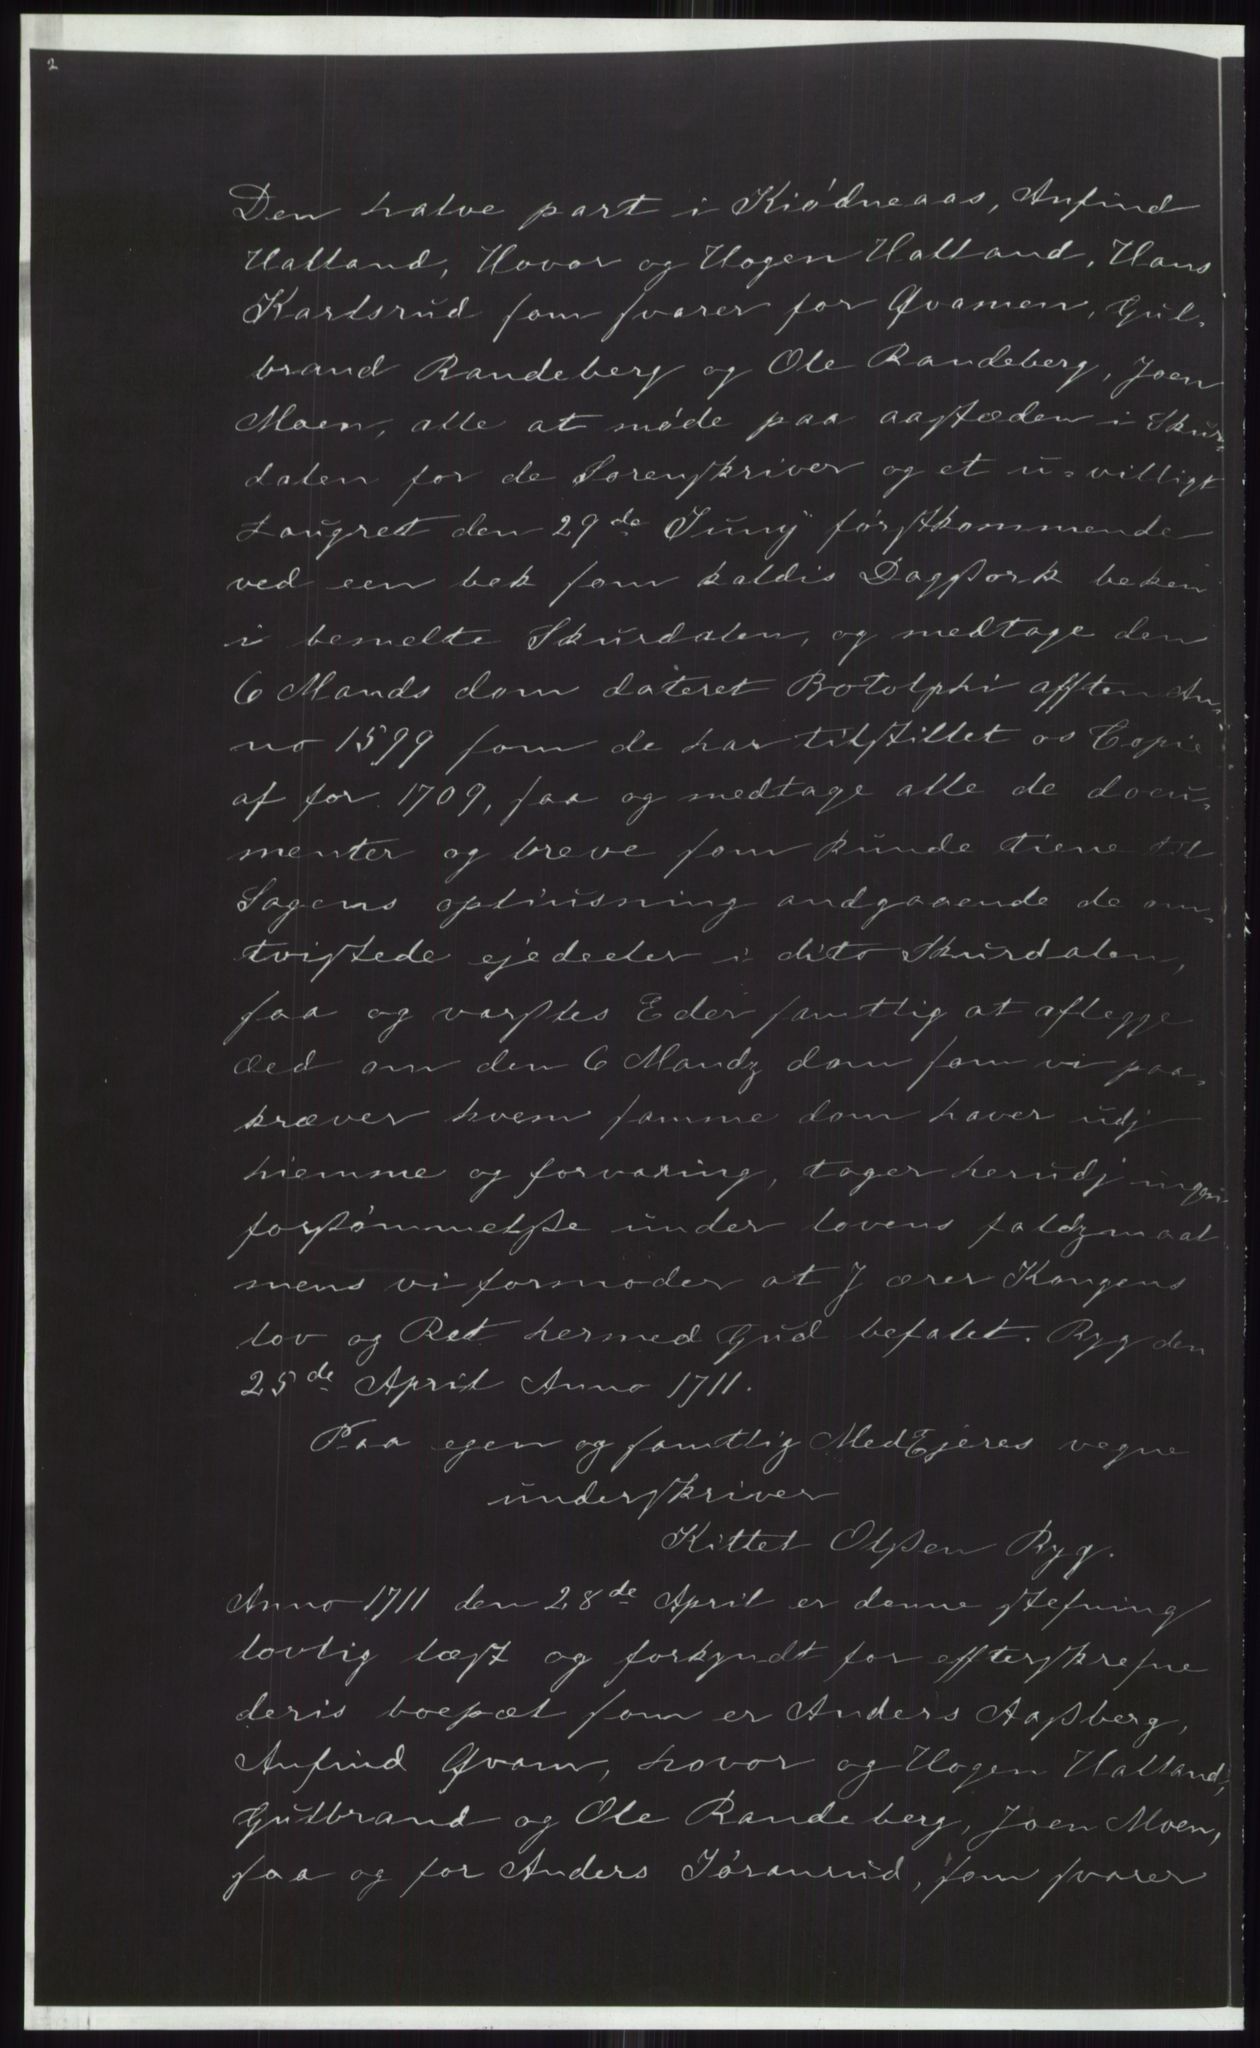 2
Den halve part i Kiødneaas, Anfind
Halland, Hovor og Hogen Halland, Hans
Karlsrud som svarer for Qvamen, Gul-
brand Randeberg og Ole Randeberg, Joen
Moen, alle at møde paa aastæden i Skur-
dalen for de Sorenskriver og et u-villigt
Laugret den 29de Junij førstkommende
ved een bek som kaldis Dagssork beken
i bemelte Skurdalen, og medtage den
6 Mands dom dateret Botolphi afften An-
no 1599 som de har tilstillet os Copie
af for 1709, saa og medtage alle de docu-
menter og breve som kunde tiene til
Sagens opliusning andgaaende de om-
tvistede ejedeeler i dito Skurdalen,
saa og varsles Eder samtlig at aflegge
æed om den 6 Mandz dom som vi paa-
kræver hvem samme dom haver udj
hiemme og forvaring, tager herudj ingen
forsømmelsse under lovens faldzmaal
mens vi formoder at J ærer Kongens
lov og Ret hermed Gud befalet. Ryg den
25de April Anno 1711.
Paa egen og samtlig MedEjeres vegne
underskriver
Kittel Olssen Ryg.
Anno 1711 den 28de April er denne stefning
lovlig læst og forkyndt for efterskrefne
deris boepæl som er Anders Aassberg,
Anfind Qvam, hovor og Hogen Halland,
Gulbrand og Ole Randeberg, Joen Moen,
saa og for Anders Jøranrud, som svarer